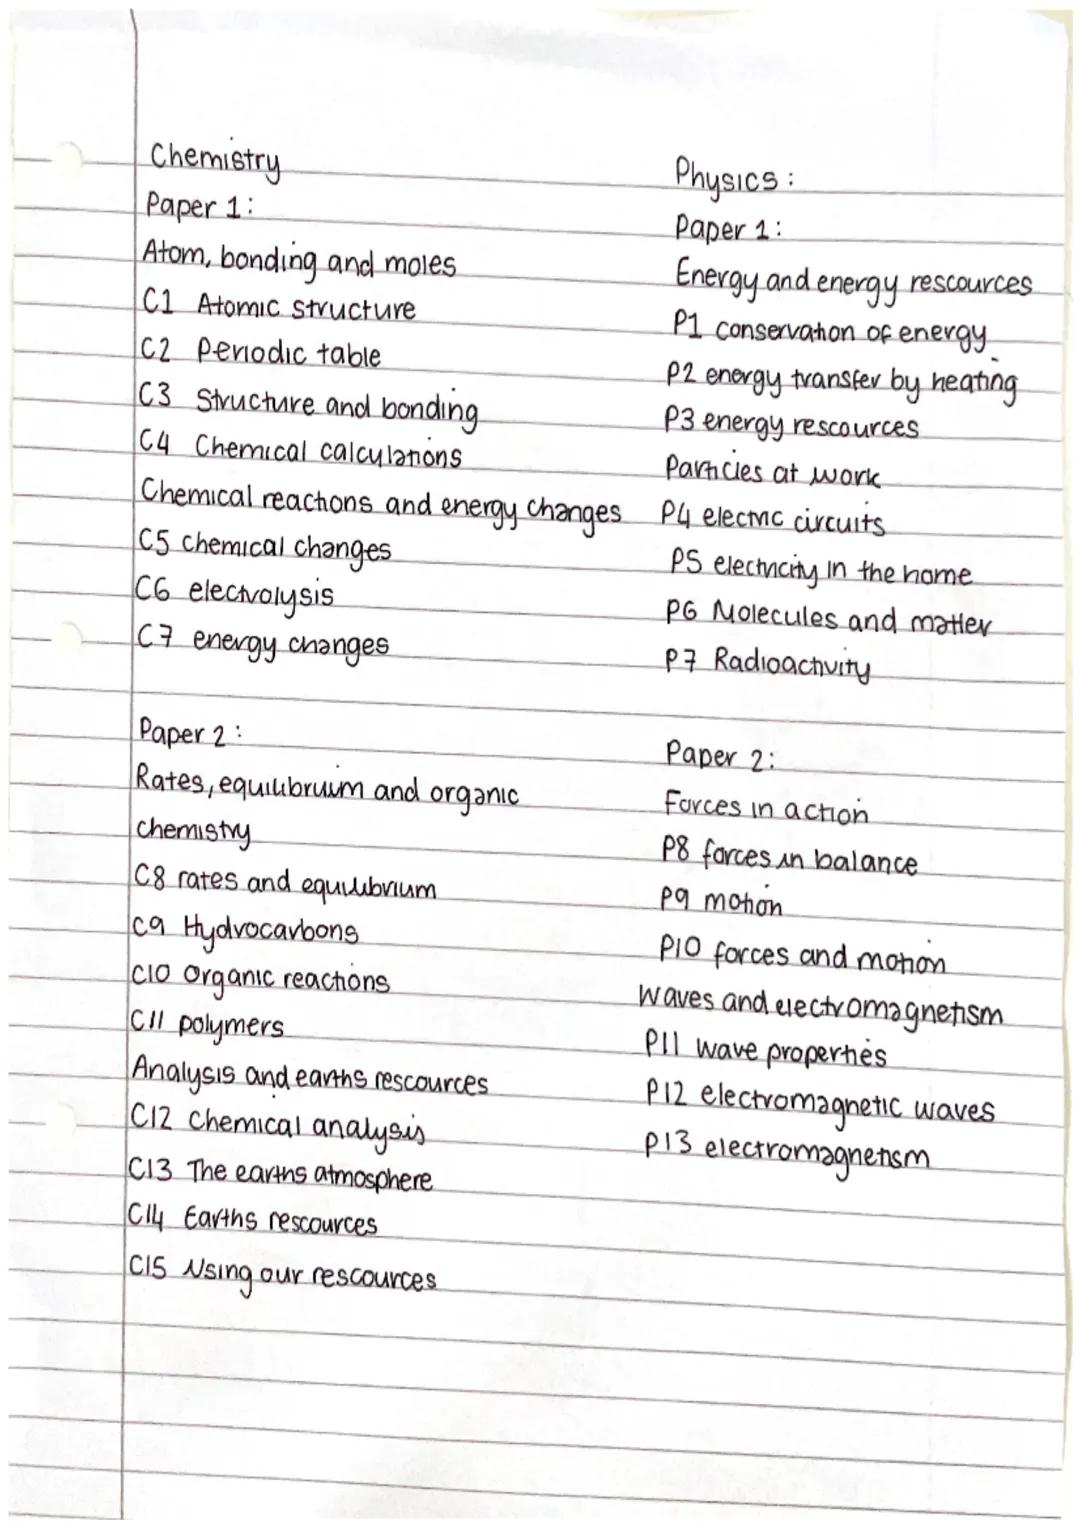 Chemistry
Paper 1:
Atom, bonding and moles
C1 Atomic structure
C2 Periodic table
C3 Structure and bonding
C4 Chemical calculations
Chemical reactions and energy changes
C5 chemical changes
C6 electrolysis
C7 energy changes
Paper 2:
Rates, equilibruim and organic
chemistry
C8 rates and equilibrium
C9 Hydrocarbons
C10 Organic reactions
C11 polymers
Analysis and earths rescources
C12 Chemical analysis
C13 The earths atmosphere
C14 Earths rescources
C15 Using our rescources
Physics:
Paper 1:
Energy and energy rescources
P1 conservation of energy
P2 energy transfer by heating
P3 energy rescources
Particles at work
P4 electric circuits
P5 electricity in the home
P6 Molecules and matter
P7 Radioactivity
Paper 2:
Forces in action
P8 forces in balance
P9 motion
P10 forces and motion
Waves and electromagnetism
P11 wave properties
P12 electromagnetic waves
P13 electromagnetism